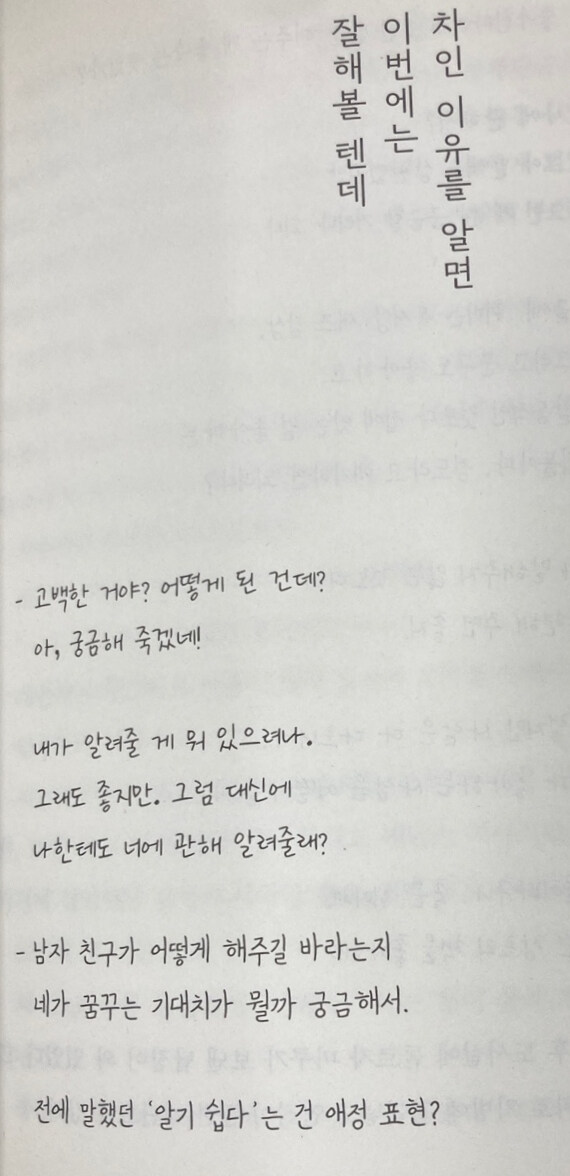 차인 이유를 알면
이번에는
잘해볼 텐데
- 고백한 거야? 어떻게 된 건데?
아, 궁금해 죽겠네!
내가 알려줄 게 뭐 있으려나.
그래도 좋지만. 그럼 대신에
나한테도 너에 관해 알려줄래?
- 남자 친구가 어떻게 해주길 바라는지
네가 꿈꾸는 기대치가 뭘까 궁금해서.
전에 말했던 ‘알기 쉽다’는 건 애정 표현?